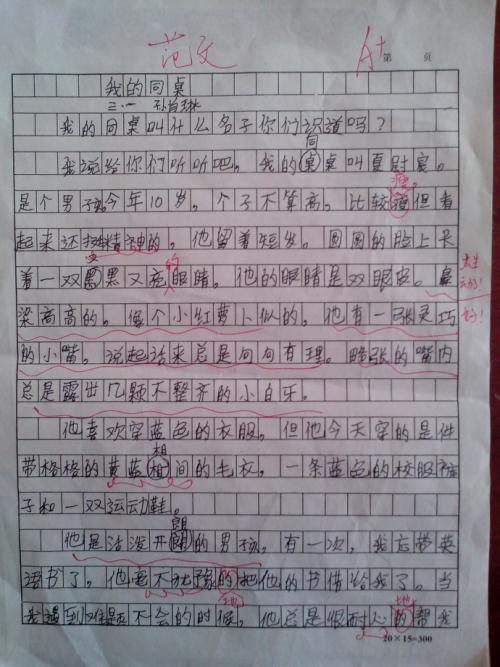 范文
A+
第 页
我的同桌
三·一 孙
我的同桌叫什么名子你们识道吗？
同
我说给你们听听吧。我的桌桌叫夏尉宸。
是个男孩今年10岁。个子不算高。比较瘦但看
起来还挺精神的。他留着短发。圆圆的脸上长
着一双又黑又亮的眼睛。他的眼睛是双眼皮。鼻
梁高高的。像个小红萝卜似的。他有一张灵巧
的小嘴。说起话来总是句句有理。的嘴内
总是露出几颗不整齐的小白牙。
生动
好！
他喜欢穿蓝色的衣服。但他今天穿的是件
相
带格格的黄蓝相间的毛衣。一条蓝色的校服裤
子和一双运动鞋。
朗
他是活泼开朗的男孩。有一次，我忘带英
语书了。他毫不犹豫的把他的书借给我了。当
地
我遇到难题不会的时候。他总是很耐心的帮我
地
20×15=300